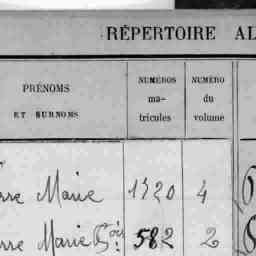 RÉPERTOIRE AL
PRÉNOMS
ET SURNOMS
NUMÉROS
ma-
tricules
NUMÉRO
du
volume
rre Marie 1320 4
rre Marie 582 2